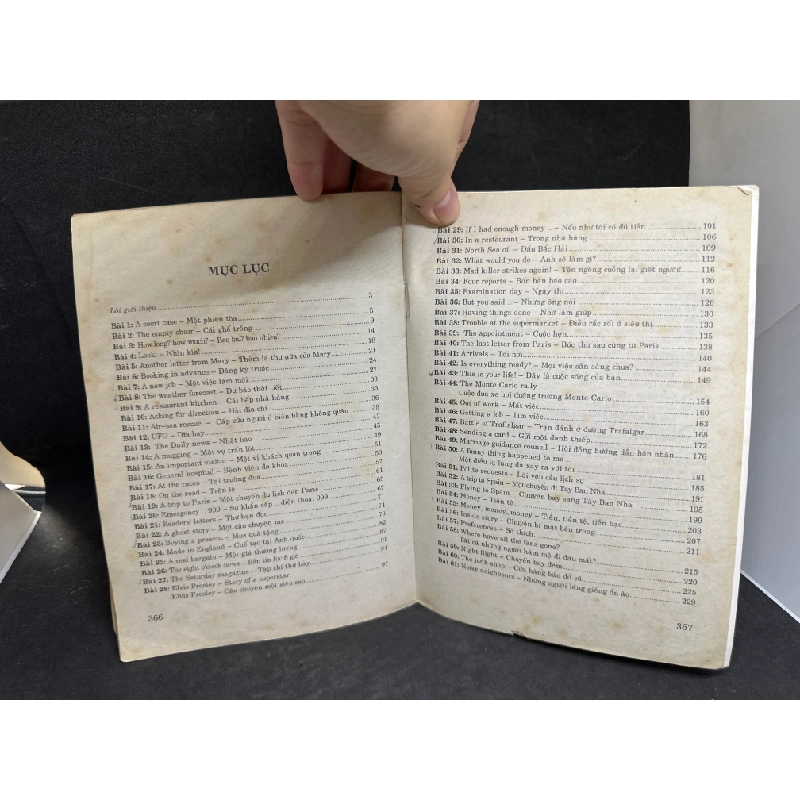 MỤC LỤC
Lời giới thiệu 3
Bài 1: A court case – Một phiên tòa 5
Bài 2: The empty chair – Cái ghế trống 9
Bài 3: How long? how much? – Bao lâu? bao nhiêu? 14
Bài 4: Look – Nhìn kìa!
Bài 5: Another letter from Mary – Thêm lá thư nữa của Mary 21
Bài 6: Booking in advance – Đăng ký trước 24
Bài 7: A new job – Một việc làm mới
Bài 8: The weather forecast – Dự báo thời tiết 30
Bài 9: A restaurant kitchen – Cái bếp nhà hàng 33
Bài 10: Asking for direction – Hỏi địa chỉ
Bài 11: Air-sea rescue – Cấp cứu người ở biển bằng không quân
Bài 12: UFO – Đĩa bay
Bài 13: The Daily news – Nhật báo 45
Bài 14: A mugging – Một vụ trấn lột 49
Bài 15: An important visitor – Một vị khách quan trọng
Bài 16: General hospital – Bệnh viện đa khoa
Bài 17: At the races – Tại trường đua
Bài 18: On the road – Trên lộ
Bài 19: A trip to Paris – Một chuyến du lịch đến Paris
Bài 20: Emergency 999 – Sự khẩn cấp – điện thoại 999
Bài 21: Readers' letters – Thư bạn đọc
Bài 22: A ghost story – Một câu chuyện ma
Bài 23: Buying a present – Mua quà tặng
Bài 24: Made in England – Chế tạo tại Anh quốc
Bài 25: A real bargain – Một giá thương lượng
Bài 26: The eight o'clock news – Bản tin lúc 8 giờ
Bài 27: The Saturday magazine – Tạp chí thứ bảy
Bài 28: Elvis Presley – Story of a superstar
Elvis Presley – Câu chuyện một siêu sao 97
366
Bài 29: If I had enough money... – Nếu như tôi có đủ tiền 101
Bài 30: In a restaurant – Trong nhà hàng 106
Bài 31: North Sea oil – Dầu Bắc Hải 109
Bài 32: What would you do – Anh sẽ làm gì? 112
Bài 33: Mad killer strikes again! – Tên ngông cuồng lại giết người! 116
Bài 34: Four reports – Bốn bản báo cáo 120
Bài 35: Examination day – Ngày thi 123
Bài 36: But you said... – Nhưng ông nói 126
Bài 37: Having things done – Nhờ làm giúp 130
Bài 38: Trouble at the supermarket – Điều rắc rối ở siêu thị 133
Bài 39: The appointment – Cuộc hẹn 135
Bài 40: The last letter from Paris – Bức thư sau cùng từ Paris 138
Bài 41: Arrivals – Tới nơi 141
Bài 42: Is everything ready? – Mọi việc sẵn sàng chưa? 144
Bài 43: This is your life! – Đây là cuộc sống của bạn 149
Bài 44: The Monte Carlo rally
Cuộc đua xe hơi đường trường Monte Carlo 154
Bài 45: Out of work – Mất việc 160
Bài 46: Getting a job – Tìm việc 163
Bài 47: Battle of Trafalgar – Trận đánh ở đường Trafalgar 168
Bài 48: Sending a card – Gửi một danh thiếp 172
Bài 49: Marriage guidance council – Hội đồng hướng dẫn hôn nhân 176
Bài 50: A funny thing happened to me...
Một điều lạ lùng đã xảy ra với tôi 181
Bài 51: – Lời yêu cầu lịch sự 185
Bài 52: A trip to Spain – Một chuyến đi Tây Ban Nha
Bài 53: Flying to Spain – Chuyến bay sang Tây Ban Nha 195
Bài 54: Money – Tiền 199
Bài 55: Money, money, money – Tiền, tiền tệ, tiền bạc 203
Bài 56: Inside story – Chuyện bí mật bên trong 207
Bài 57: Preferences – Sở thích 211
Bài 58: Where have all the fans gone?
Tất cả những người hâm mộ đi đâu mất? 215
Bài 59: Night flight – Chuyến bay đêm 220
Bài 60: The junk shop – Cửa hàng bán đồ cũ 225
Bài 61: Noisy neighbours – Những người láng giềng ồn ào 229
367